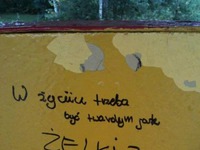 W życiu trzeba
być twardym jak
ŻELKI